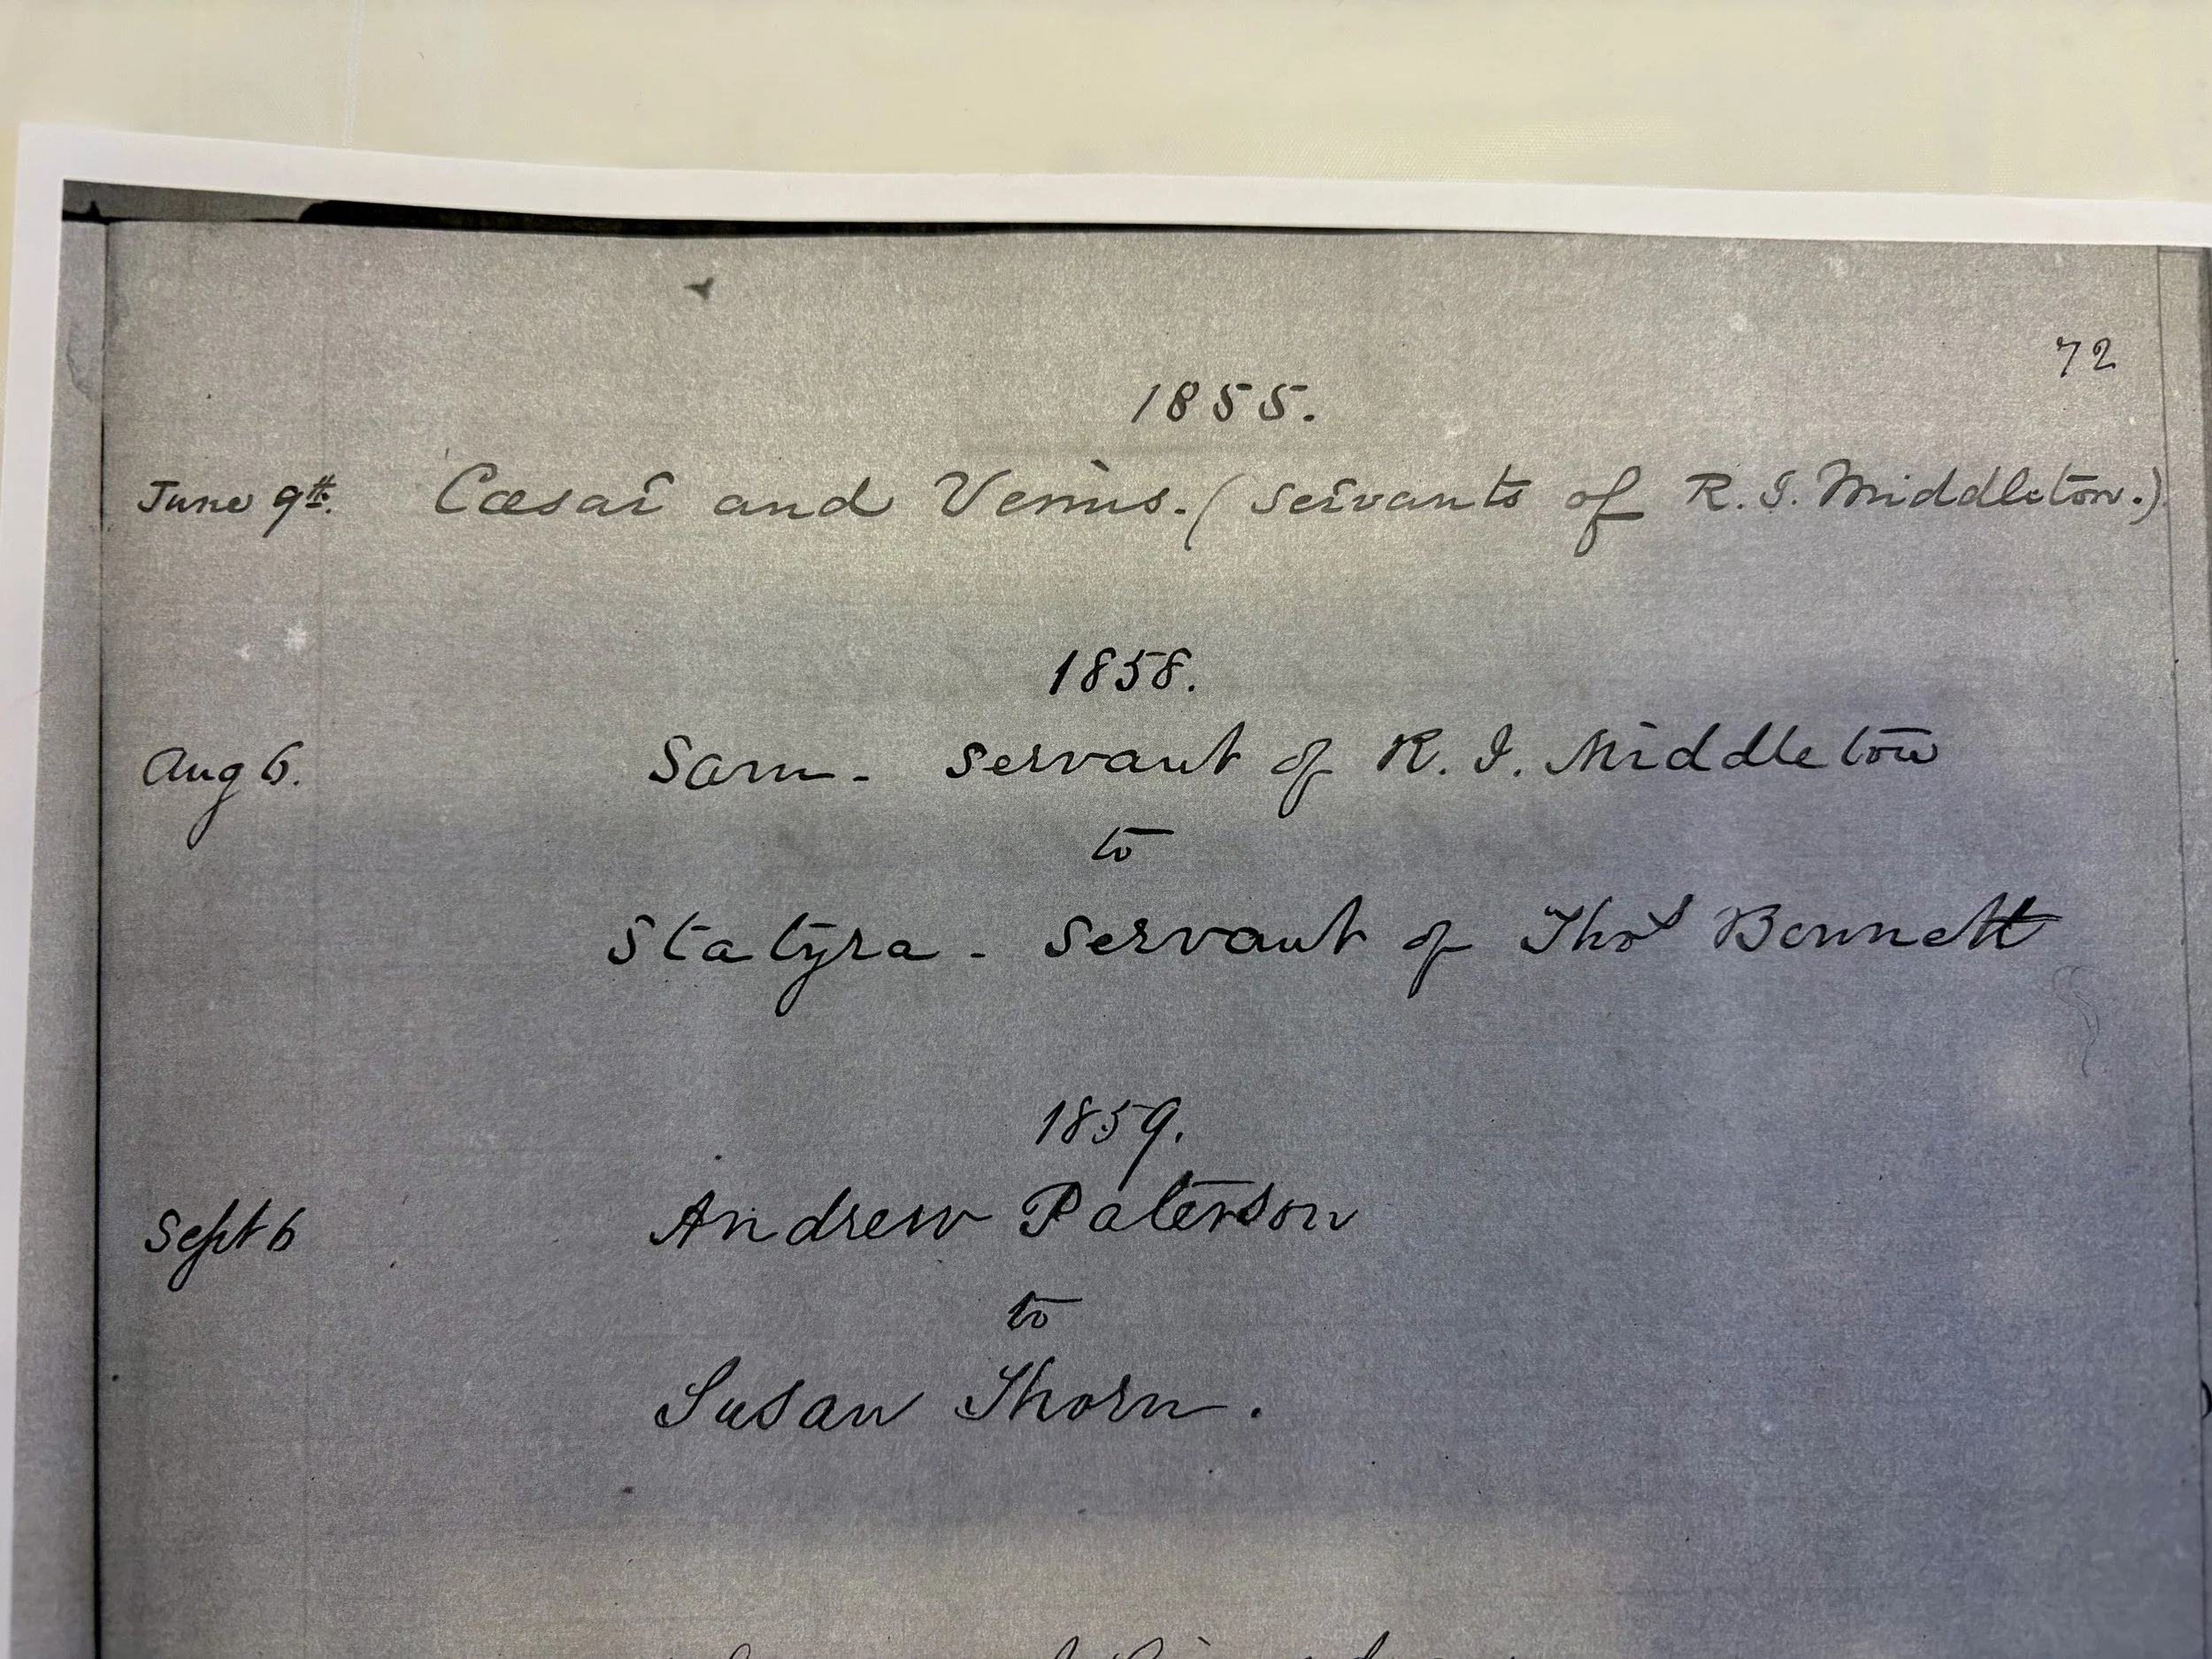 72
1855.
June 9th. Cæsar and Venus. (servants of R. I. Middleton.)
1858.
Aug 6. Sam - servant of R. I. Middleton
to
Statyra - servant of Thos Bennett
1859.
Sept 6 Andrew Paterson
to
Susan Thorn.